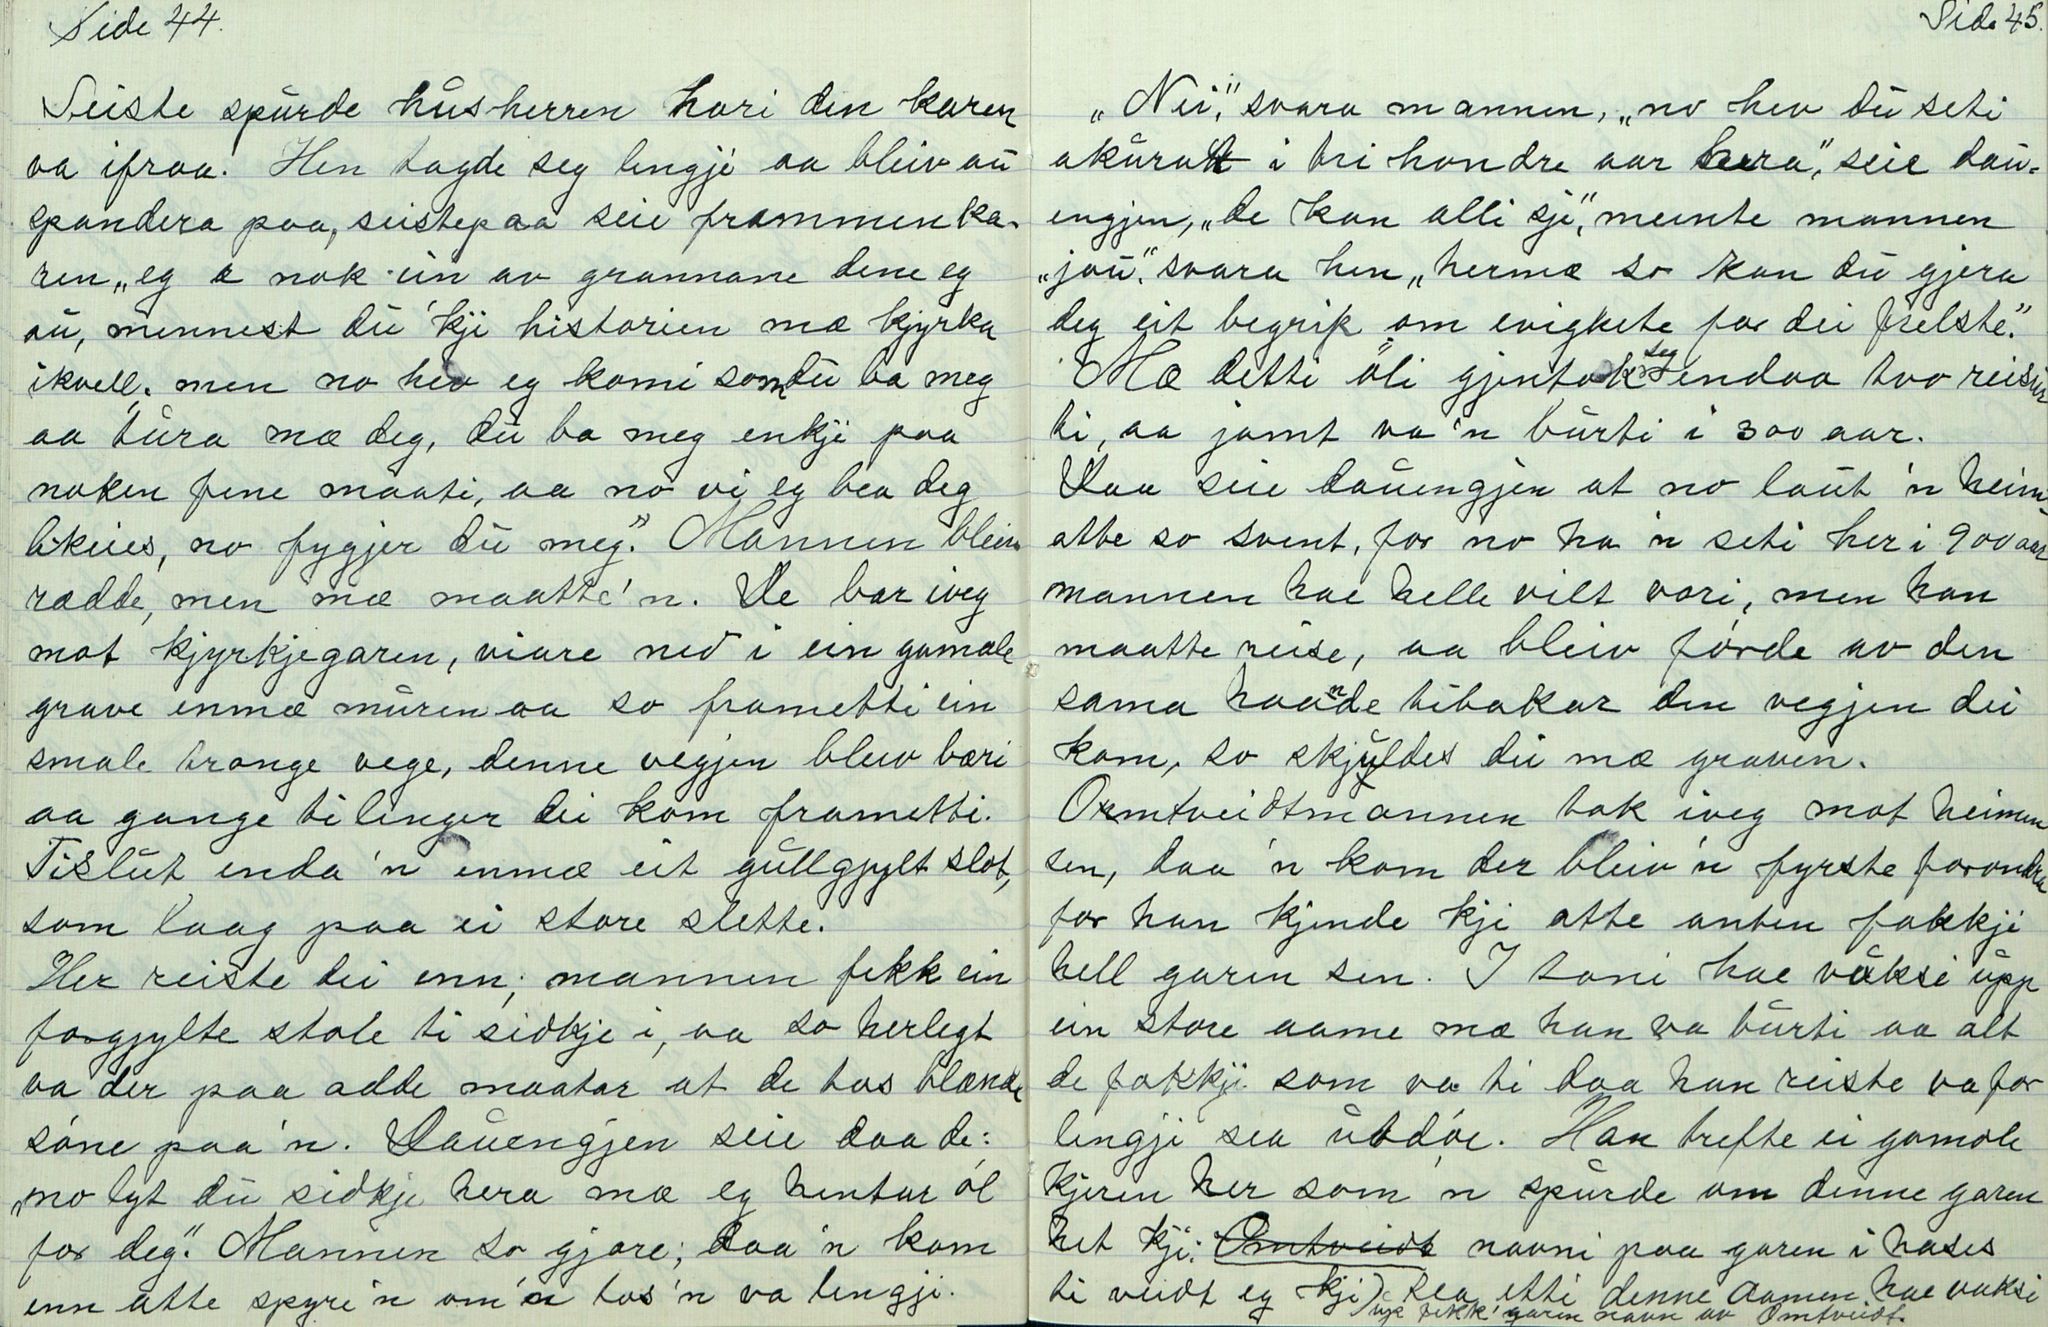 Side 44.
Seiste spurde husherren hori den karen
va ifraa. Hen tagde seg lengje aa bleiv au
spandera paa, seistepaa seie frammenka-
ren „eg æ nok ein av grannane dene eg
au, mennest du 'kji historien mæ kjyrka
ikvell, men no hev eg komi som du ba meg
aa tura mæ deg, du ba meg enkji paa
noken fine maati, aa no vi eg bea deg
likeies, no fygjer du meg." Mannen bleiv
rædde, men mæ maatte'n. De bar iveg
mot kjyrkjegaren, viare ned i ein gamale
grave enmæ muren aa so frametti ein
smale trange vege, denne vegjen bleiv bæri
aa gange ti lenger dei kom frametti.
Tislut enda 'n enmæ eit gullgjylt slot,
som laag paa ei store slette.
Her reiste dei enn; mannen fekk ein
forgjylte stole ti sidkje i, aa so herlegt
va der paa adde maatar at de tos blænde
sóne paa'n. Dauengjen seie daa de:
„no lyt du sidkje hera mæ eg hentar ól
for deg". Mannen so gjore; daa'n kom
enn atte spyre'n om'n tos'n va lengji.
Side 45.
„Nei", svara mannen, „no hev du seti
akurat i tri hondre aar hera", seie dau-
engjen, „de kan alli sje", meinte mannen
„jau". svara hen „hermæ so kan du gjera
deg eit begrip om evigkete for dei frelste."
Mæ detti öli gjentok seg endaa tvo reisur
ti, aa jamt va'n burti i 300 aar.
Daa seie dauengjen at no laut 'n heim-
atte so svent, for no ha'n seti her i 900 aar
mannen hae helle vilt vori, men han
maatte reise, aa bleiv fórde av den
sama haande tibakar den vegjen dei
kom, so skjyldes dei mæ graven.
Omtveidtmannen tok iveg mot heimen
sen, daa 'n kom der bleiv'n fyrste forondra
for han kjende kji atte anten fokkji
hell garen sen. I toni hae vaksi upp
ein store aame mæ han va burti aa alt
de fokkji som va ti daa han reiste va for
lengji sea utdóe. Han trefte ei gamole
kjering her som 'n spurde om denne garen
het kji: Omtveidt navni paa garen i hases
ti veidt eg kji) Sea etti denne aamen hae vaksi
upp fekk garen navn av Omtveidt.